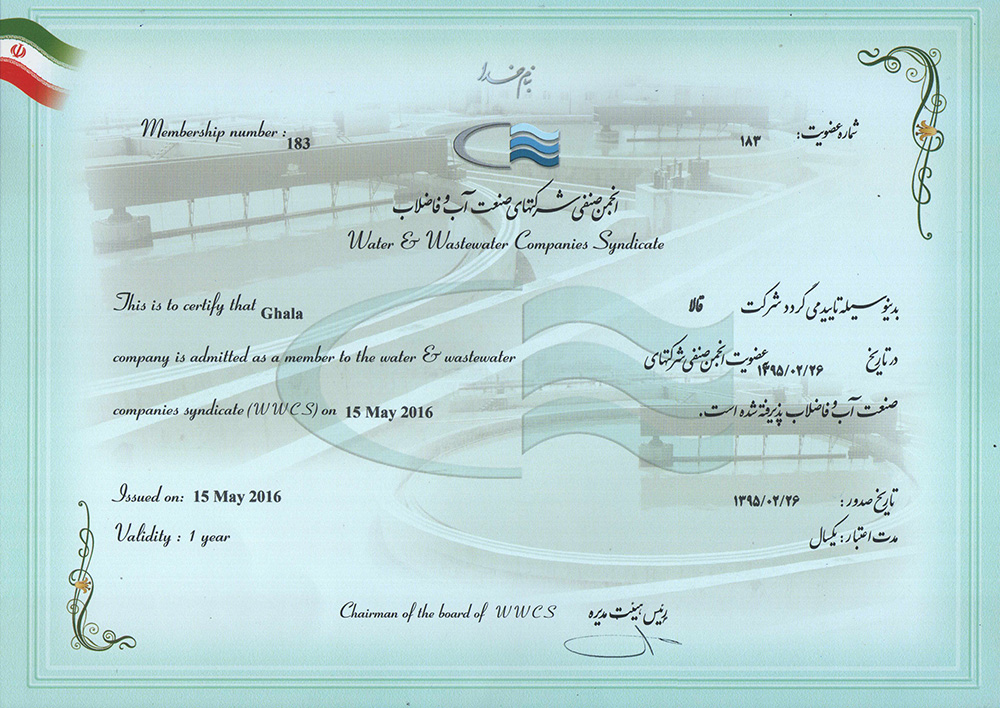 بنام خدا
Membership number : 183
شماره عضویت: ۱۸۳
انجمن صنفی شرکتهای صنعت آب و فاضلاب
Water & Wastewater Companies Syndicate
This is to certify that Ghala
company is admitted as a member to the water & wastewater
companies syndicate (WWCS) on 15 May 2016
بدینوسیله تایید می گردد شرکت قالا
در تاریخ ۱۳۹۵/۰۲/۲۶ عضویت انجمن صنفی شرکتهای
صنعت آب و فاضلاب پذیرفته شده است.
Issued on: 15 May 2016
Validity : 1 year
تاریخ صدور : ۱۳۹۵/۰۲/۲۶
مدت اعتبار : یکسال
Chairman of the board of WWCS
رئیس هیئت مدیره